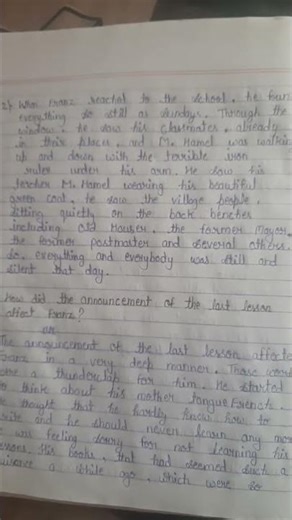 2) When Franz reached to the school, he foun
everything so still as Sundays. Through the
window, he saw his classmates, already
in their places, and M. Hamel was walkin
up and down with the terrible iron
ruler under his arm. He saw his
teacher M. Hamel wearing his beautiful
green coat. He saw the village people,
sitting quietly on the back benches
including Old Hauser, the former Mayor,
the former postmaster and several others.
So, everything and everybody was still and
silent that day.
How did the announcement of the last lesson
affect Franz?
The announcement of the last lesson affecte
Franz in a very deep manner. Those words
were a thunderclap for him. He started
to think about his mother tongue French.
He thought that he hardly knew how to
write and he should never learn any more
was feeling sorry for not learning his
lessons. His books, that had seemed such a
nuisance a while ago, which were so